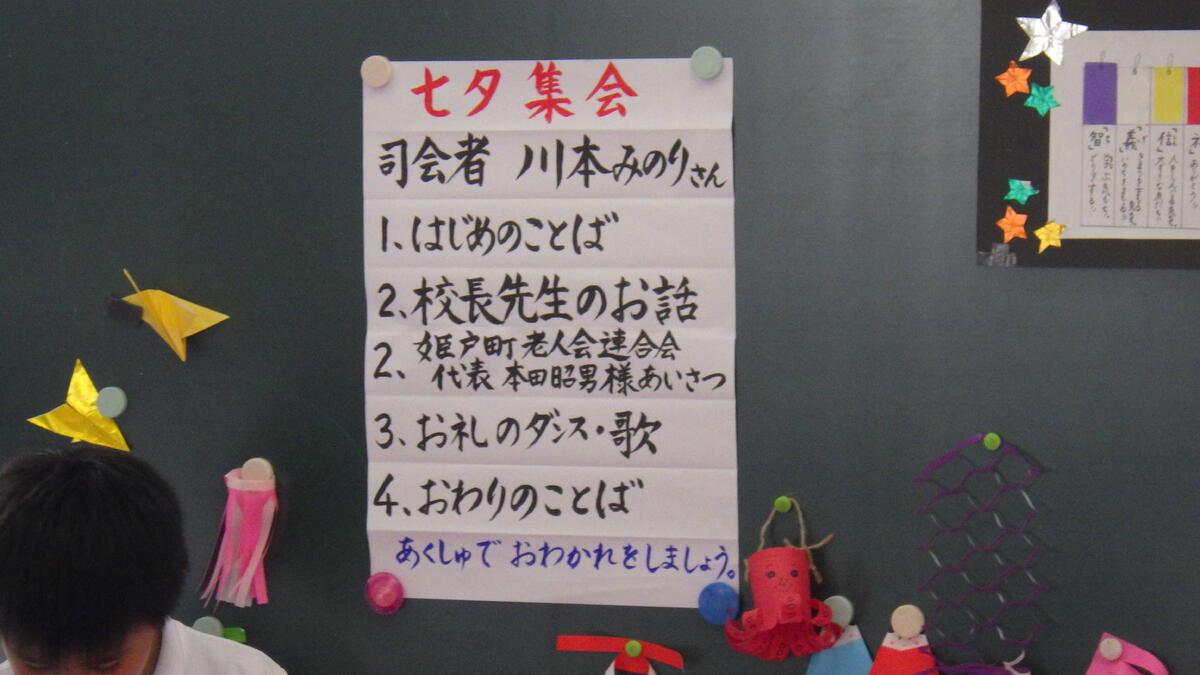 七夕集会
司会者 川本みのりさん
1、はじめのことば
2、校長先生のお話
2、姫戸町老人会連合会
代表 本田昭男様あいさつ
3、お礼のダンス・歌
4、おわりのことば
あくしゅで おわかれをしましょう。
「信」
「義」
「智」